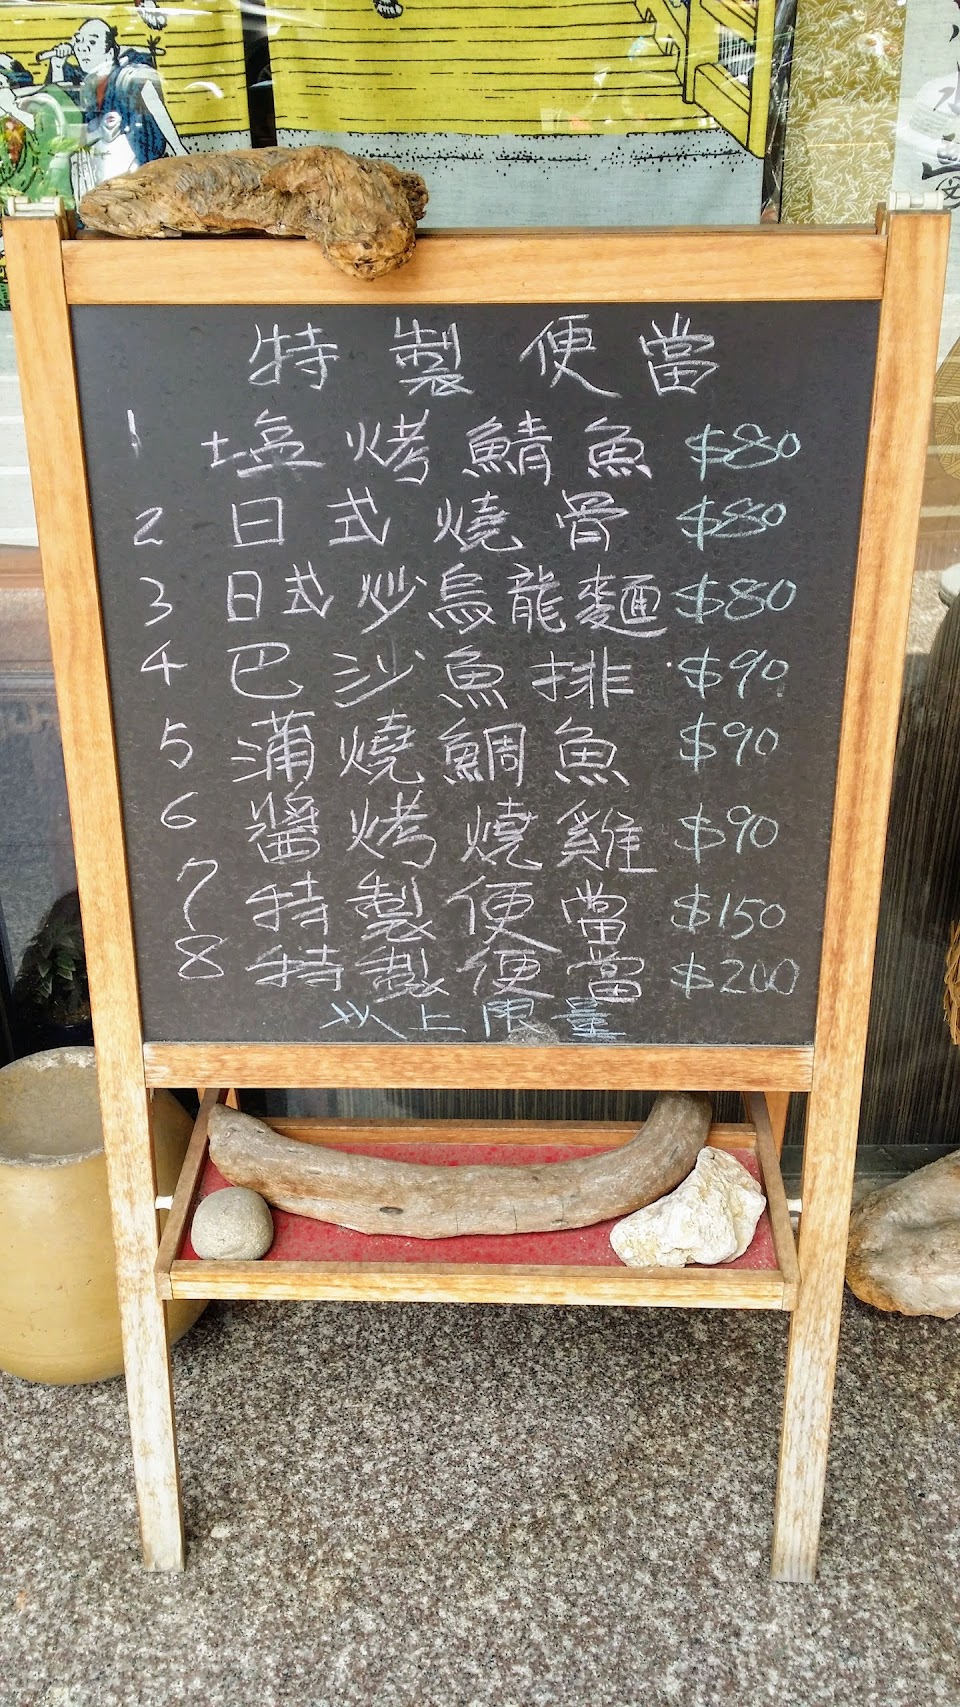 特製便當
1 塩烤鯖魚 $80
2 日式燒骨 $80
3 日式炒烏龍麵 $80
4 巴沙魚排 $90
5 蒲燒鯛魚 $90
6 醬烤燒雞 $90
7 特製便當 $150
8 特製便當 $200
以上限量